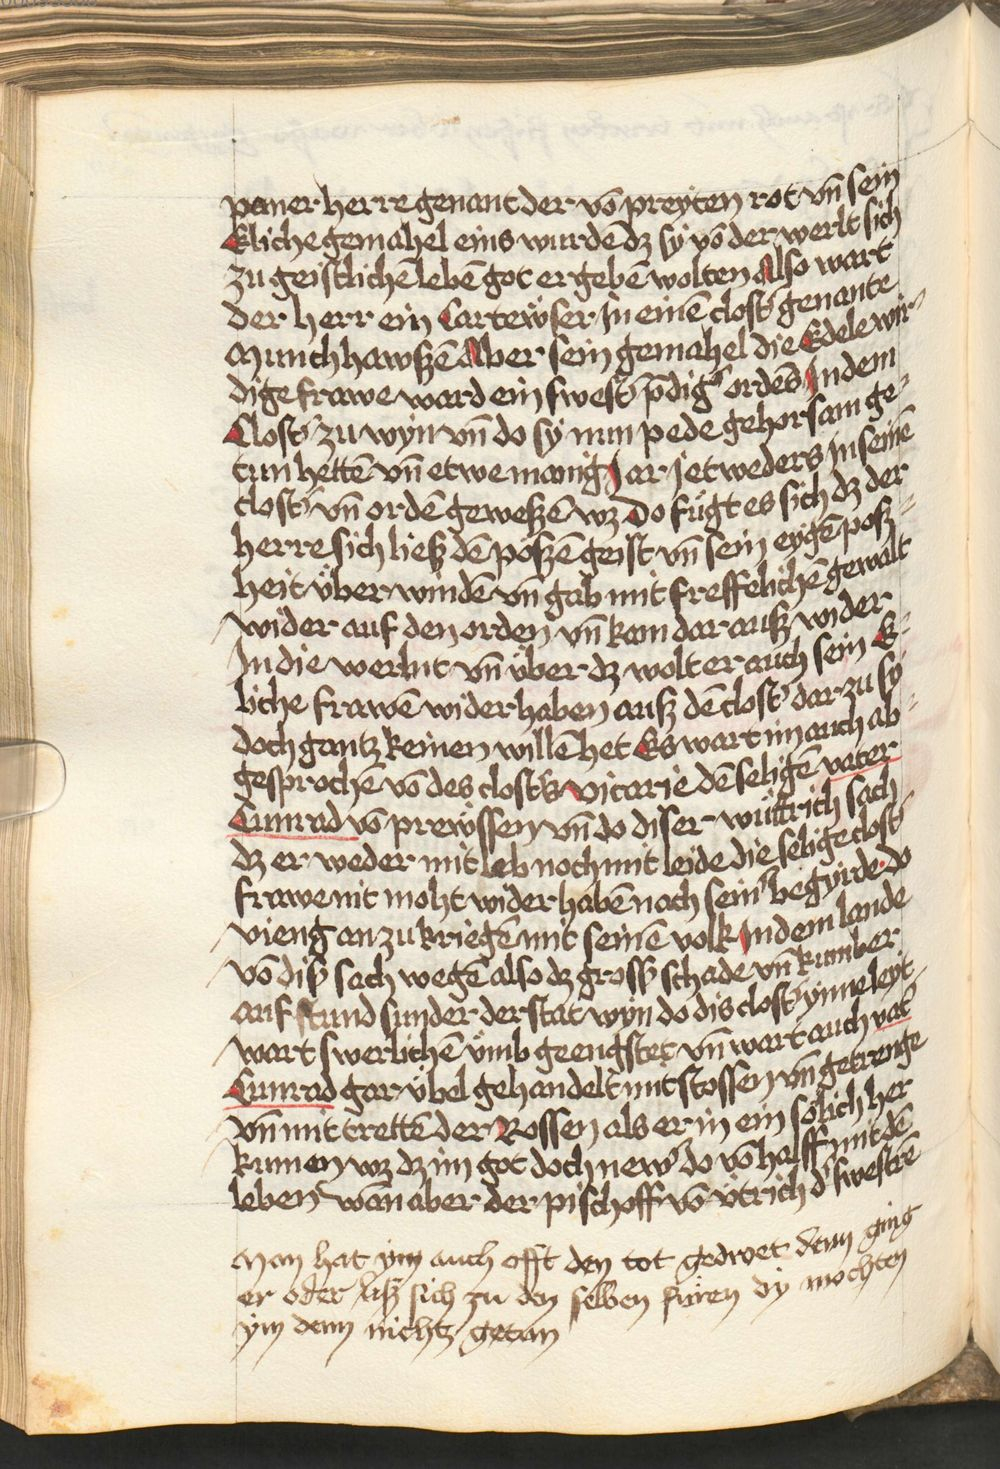 paner herre genant der vō preyten rot vn̄ sein
Eliche gemahel eins wurdē dz sy vō der werlt sich
zu geistlichē lebē got ergebē wolten Also wart
der herr ein Cartewser In einē clost' genante
Munchhawszē Aber sein gemahel die Edele wir-
dige frawe ward ein swest' p̄dig' ordēs In dem
Clost' zu wyn vn̄ do sy nun pede gehorsam ge-
tun hettē vn̄ etwe manig Jar jetweders In seinē
clost' vn̄ ordē geweszē wz Do fügt es sich dz der
herre sich liesz dē poszē geist vn̄ sein eygē posz-
heit über windē vn̄ gab mit freffelichē gewalt
wider auf den orden vn̄ kam dar ausz wider
In die werlnt vn̄ über dz wolt er auch sein E-
liche frawē wider haben ausz dē clost' dar zu sy
doch gantz keinen willē het Es wart im auch ab-
gesprochē vō des clost's vicarie dē seligē vater
Cunrad vō prewssen vn̄ do diser wüttrich sach
dz er weder mit leb noch mit leide die selige clost'
frawe nit moht wider habē nach sein' begyrde Do
vieng an zu kriegē mit seinē volk In dem lande
vō dis' sach wegē also dz gross' schade vn̄ kumber
auf stund sunder der stat wyn do dis clost' ynne leyt
wart swerlichē vmb geengstet vn̄ wart auch vat'
Cunrad gar übel gehandelt mit stossen vn̄ getrenge
vn̄ mit trettē der Rossen als er in ein sölich her
kumen wz dz im got doch new' do vō halff mit dē
leben wan aber der pischoff vō vtrich d' swestrē
Man hat ym auch offt den tot gedroet denn ging
er oder lisz sich zu den selben füren dy mochten
ym denn nichtz getan